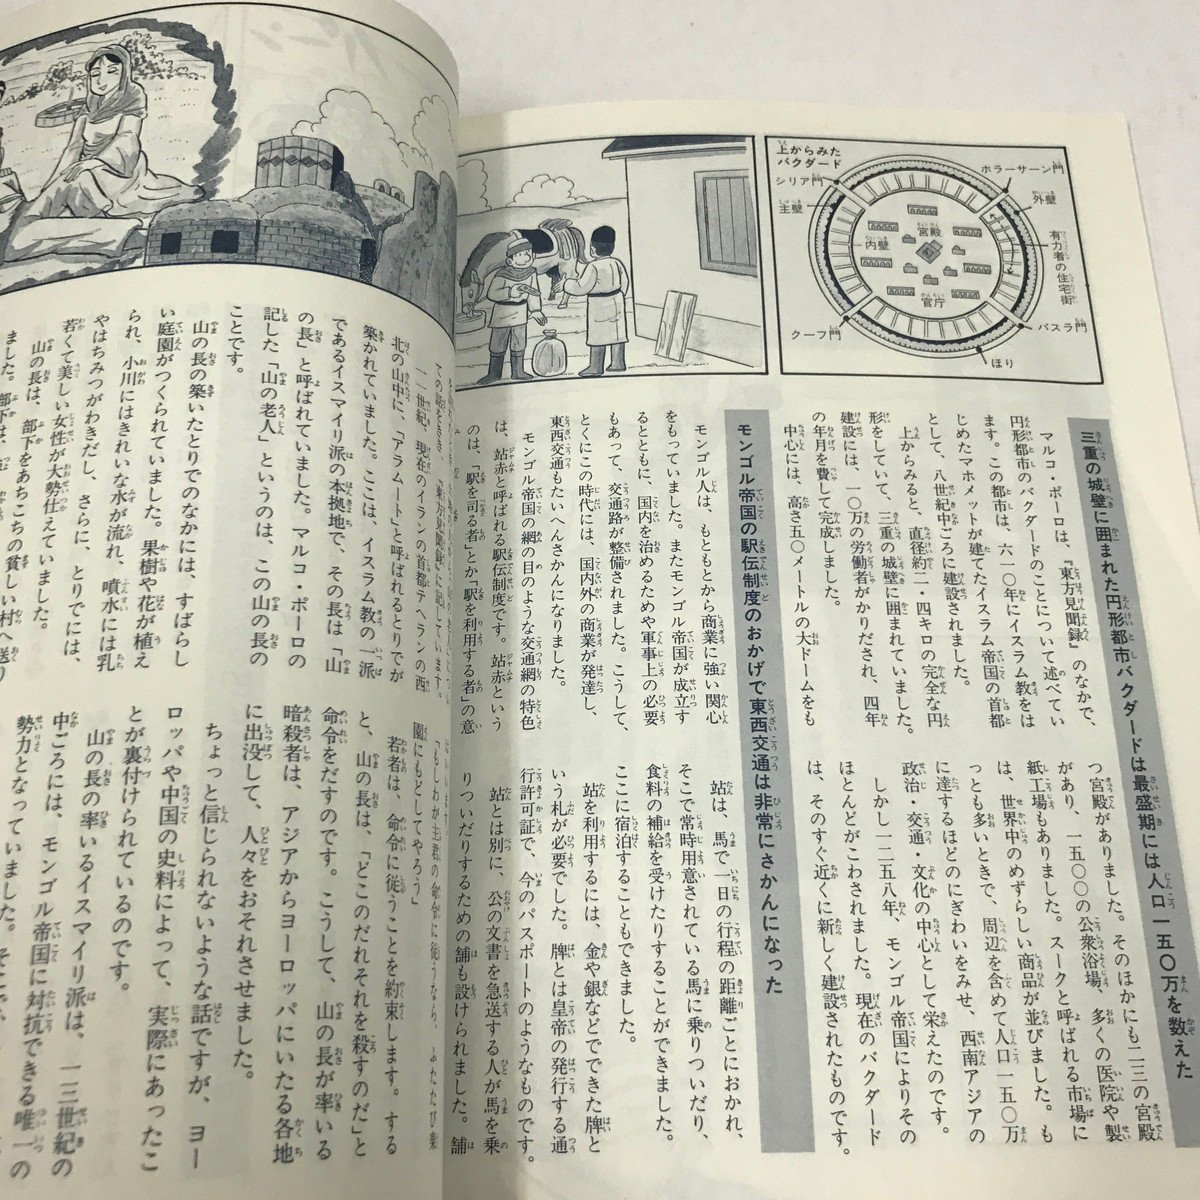 上からみた
バクダード
シリア門
主壁
内壁
クーフ門
宮殿
官庁
ホラーサーン門
外壁
有力者の住宅街
バスラ門
ほり
三重の城壁に囲まれた円形都市バクダードは最盛期には人口一五〇万を数えた
マルコ・ポーロは、『東方見聞録』のなかで、
円形都市のバクダードのことについて述べてい
ます。この都市は、六一〇年にイスラム教をは
じめたマホメットが建てたイスラム帝国の首都
として、八世紀中ごろに建設されました。
上からみると、直径約二・四キロの完全な円
形をしていて、三重の城壁に囲まれていました。
建設には、一〇万の労働者がかりだされ、四年
の年月を費して完成しました。
中心には、高さ五〇メートルの大ドームをも
つ宮殿がありました。そのほかにも二三の宮殿
があり、一五〇〇の公衆浴場、多くの医院や製
紙工場もありました。スークと呼ばれる市場に
は、世界中のめずらしい商品が並びました。も
っとも多いときで、周辺を含めて人口一五〇万
に達するほどのにぎわいをみせ、西南アジアの
政治・交通・文化の中心として栄えたのです。
しかし一二五八年、モンゴル帝国によりその
ほとんどがこわされました。現在のバクダード
は、そのすぐ近くに新しく建設されたものです。
モンゴル帝国の駅伝制度のおかげで東西交通は非常にさかんになった
モンゴル人は、もともとから商業に強い関心
をもっていました。またモンゴル帝国が成立す
るとともに、国内を治めるためや軍事上の必要
もあって、交通路が整備されました。こうして、
とくにこの時代には、国内外の商業が発達し、
東西交通もたいへんさかんになりました。
モンゴル帝国の網の目のような交通網の特色
は、站赤と呼ばれる駅伝制度です。站赤という
のは、「駅を司る者」とか「駅を利用する者」の意
站は、馬で一日の行程の距離ごとにおかれ、
そこで常時用意されている馬に乗りついだり、
食料の補給を受けたりすることができました。
ここに宿泊することもできました。
站を利用するには、金や銀などでできた牌と
いう札が必要でした。牌とは皇帝の発行する通
行許可証で、今のパスポートのようなものです。
站とは別に、公の文書を急送する人が馬を乗
りついだりするための舗も設けられました。舗
一一世紀、現在のイランの首都テヘランの西
北の山中に、「アラムート」と呼ばれるとりでが
築かれていました。ここは、イスラム教の一派
であるイスマイリ派の本拠地で、その長は「山
の長」と呼ばれていました。マルコ・ポーロの
記した「山の老人」というのは、この山の長の
ことです。
山の長の築いたとりでのなかには、すばらし
い庭園がつくられていました。果樹や花が植え
られ、小川にはきれいな水が流れ、噴水には乳
やはちみつがわきだし、さらに、とりでには、
若くて美しい女性が大勢仕えていました。
山の長は、部下をあちこちの貧しい村へ送り
ました。部下は、
「もしわが主君の命令に従うなら、ふたたび楽
園にもどしてやろう」
若者は、命令に従うことを約束します。する
と、山の長は、「どこのだれそれを殺すのだ」と
命令をだすのです。こうして、山の長が率いる
暗殺者は、アジアからヨーロッパにいたる各地
に出没して、人々をおそれさせました。
ちょっと信じられないような話ですが、ヨー
ロッパや中国の史料によって、実際にあったこ
とが裏付けられているのです。
山の長の率いるイスマイリ派は、一三世紀の
中ごろには、モンゴル帝国に対抗できる唯一の
勢力となっていました。